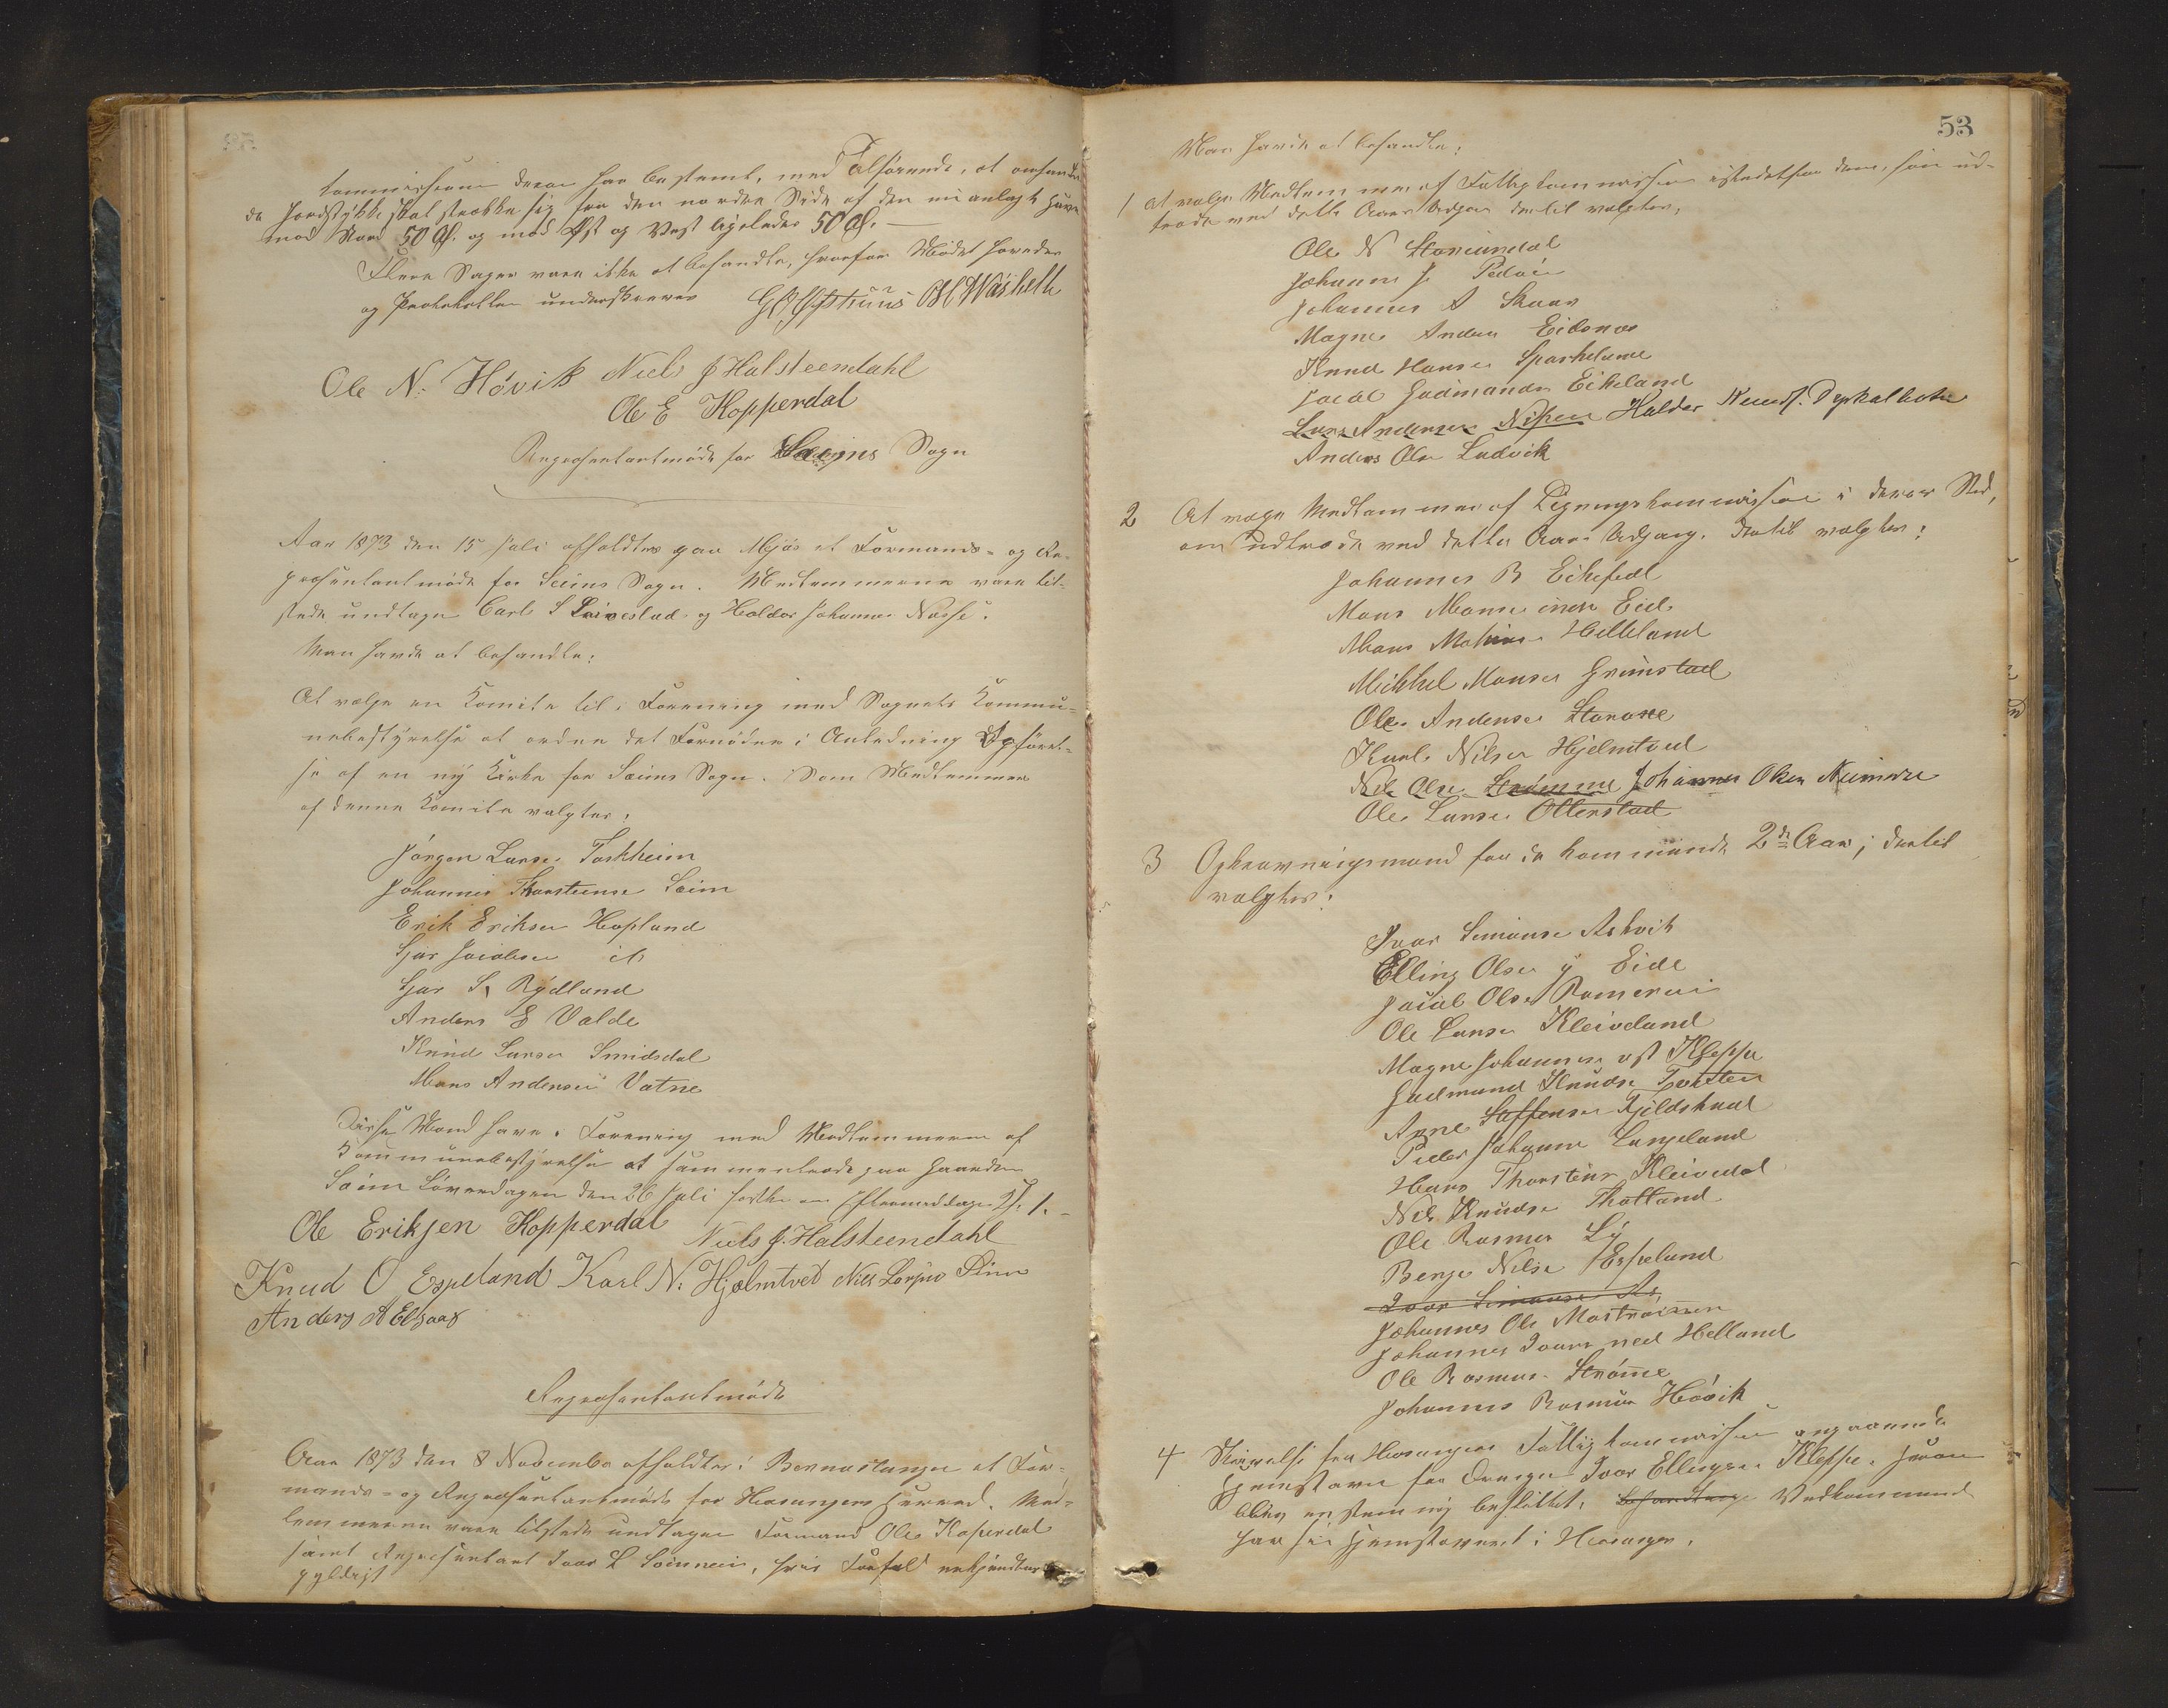 Kommissionen derom har bestemt, med Tilføiende, at omhandle-
de Jordstykke skal strække sig fra den nordre Side af den nu anlagte Have
mod Nord 50 Al. og mod Øst og Vest ligeledes 50 Al. —
Flere Sager vare ikke at behandle, hvorfor Mødet hævedes
og Protokollen underskreves
Ole N. Høvik Niels J Halsteendahl
Ole E Kopperdal
Repræsentantmøde for Sæims Sogn
Aar 1873 den 15 Juli afholdtes paa Mjøs et Formands- og Re-
præsentantmøde for Seims Sogn. Medlemmerne vare til-
stede undtagen Carl S Leivestad og Haldor Johannes Nesse.
Man havde at behandle:
At vælge en Komite til i Forening med Sognets Kommu-
nebestyrelse at ordne det Fornødne i Anledning Opførel-
se af en ny Kirke for Sæims Sogn. Som Medlemmer
af denne Komite valgtes:
Jørgen Larsen Toskheim
Johannes Thorsteensen Sæim
Erik Eriksen Hopland
Sjur Jacobsen ib
Sjur S. Rydland
Anders E Valde
Knud Larsen Smidsdal
Mons Andersen Vatne
Disse Mænd have i Forening med Medlemmerne af
Kommunebestyrelsen at sammentræde paa Gaarden
Sæim Løverdagen den 26 Juli førstk. om Eftermiddagen Kl. 1. —
Ole Eriksen Kopperdal Niels J. Halsteendahl
Knud O Espeland Karl N. Hjelmtvet Nils
Anders A Elsaas
Repræsentantmøde
Aar 1873 den 8 November afholdtes i Bernestangen et For-
mands- og Repræsentantmøde for Hosangers Herred. Med-
lemmerne vare tilstede undtagen Formand Ole Koperdal
samt Repræsentant Ivar L Soinnein, hvis Forfald ankjendtes
gyldigt
53
Man havde at behandle:
1 At vælge Medlemmer af Fattigkommissionen istedetfor dem, som ud-
træde ved dette Aars Udgang dertil valgtes:
Ole N
Johannes J
Johannes A Skaar
Magne Anders Eidsnes
Knud Hansen
Jacob Gudmunds Eikeland
Lars Andersen Nipen Haldor Knuds. Dyrkolbotn
Anders Olsen Ladvik
2 At vælge Medlemmer af Ligningskommissionen i deres Sted,
om udtræde ved dette Aars Udgang. Dertil valgtes:
Johannes B Eikefedt
Mons Monsen indre Eide
Mons Helleland
Mikkel Monsen Grimstad
Ole Andersen
Karl Nilsen Hjelmtved
Nils Olsen Johannes Olsen
Ole Larsen Otterstad
3 Opkrævningsmænd for de kommende 2de Aar; dertil
valgtes:
Ivar Simonsen Askvik
Elling Olsen y Eide
Jacob Olsen
Ole Larsen Kleiveland
Magne Johannesen øst Kleppe
Gudmund Knudsen
Arne Steffensen
Peder Johannes Langeland
Hans Thorstens Kleivedal
Nils Knudsen
Ole Rasmus Ly
Berge Nilsen Espeland
Ivar Simonsen As
Johannes Ols
Johannes Ivars ned Helland
Ole Rasmus. Strømme
Johannes Rasmus Høvik
4 Skrivelse fra Hosangers Fattigkommission angaaende
Hjemstavn for Drengen Ivar Ellingsen Kleppe. Hvorom
blev enstemmig besluttet, behandling Vedkommende
har sin Hjemstavnret i Hosanger.